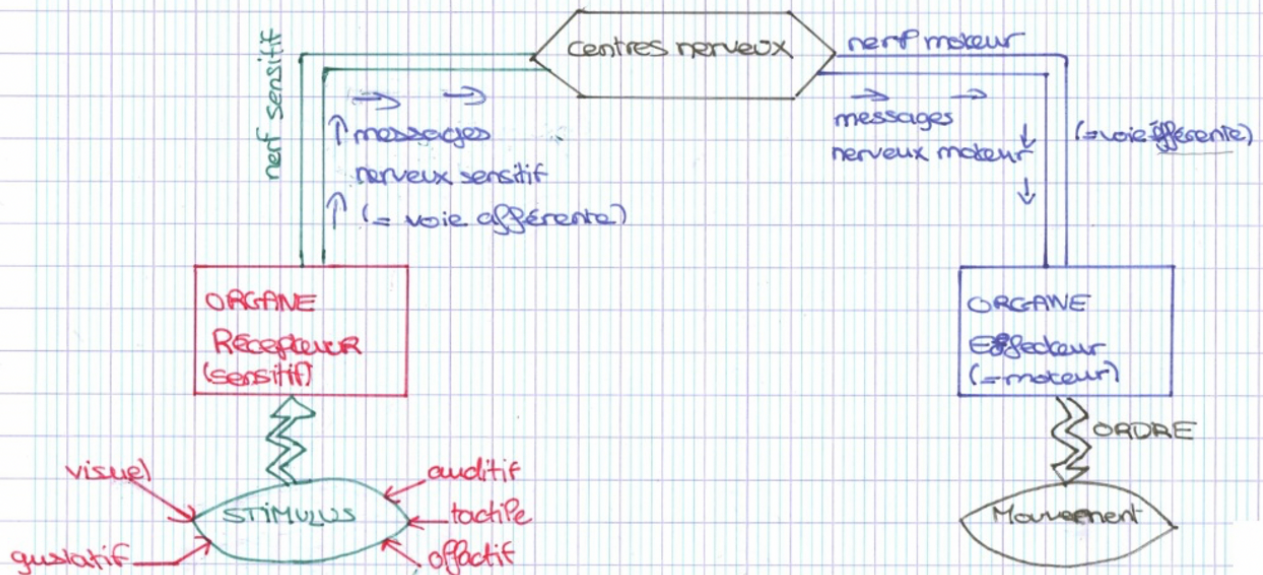 nerf sensitif
centres nerveux
nerf moteur
messages
nerveux sensitif
(= voie afférente)
messages
nerveux moteur
(= voie éfférente)
ORGANE
Récepteur
(sensitif)
ORGANE
Effecteur
(= moteur)
ORDRE
visuel
auditif
STIMULUS
tactile
gustatif
olfactif
Mouvement